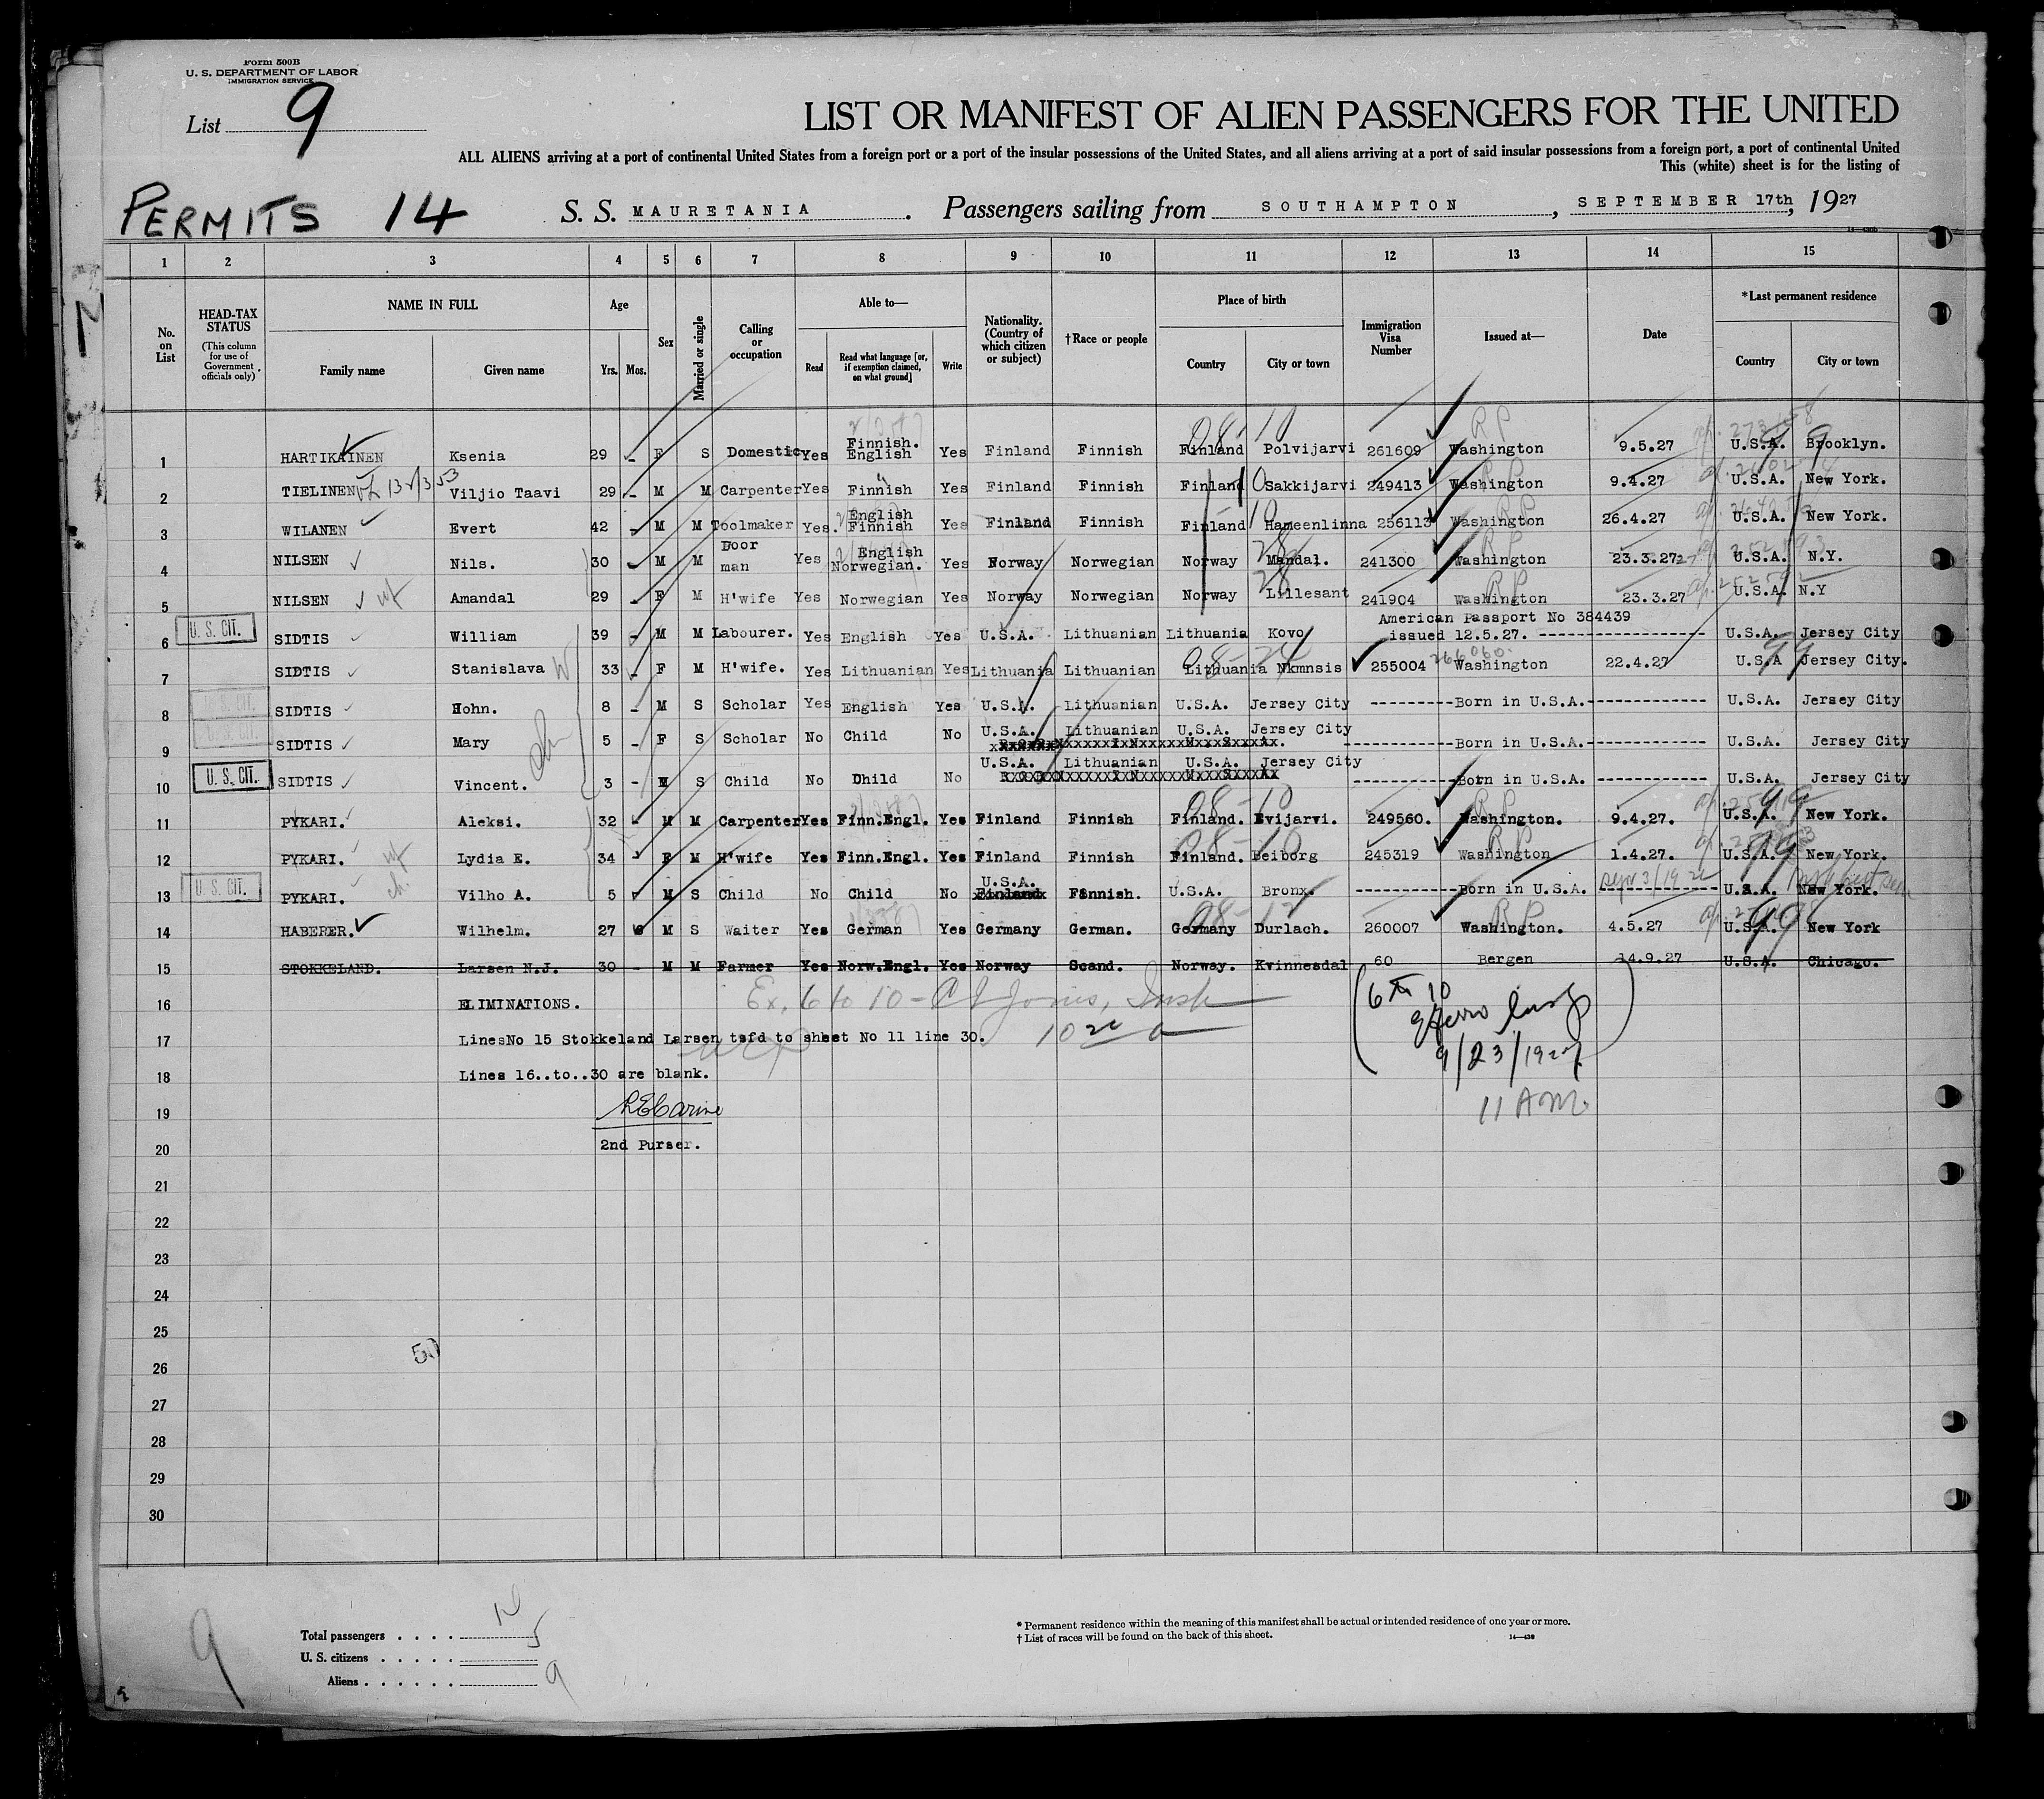 Form 500B
U. S. DEPARTMENT OF LABOR
IMMIGRATION SERVICE
List 9
LIST OR MANIFEST OF ALIEN PASSENGERS FOR THE UNITED
ALL ALIENS arriving at a port of continental United States from a foreign port or a port of the insular possessions of the United States, and all aliens arriving at a port of said insular possessions from a foreign port, a port of continental United
This (white) sheet is for the listing of
PERMITS 14 S. S. MAURETANIA. Passengers sailing from SOUTHAMPTON, SEPTEMBER 17th, 1927
1 2 3 4 5 6 7 8 9 10 11 12 13 14 15
No. on List
HEAD-TAX STATUS (This column for use of Government officials only)
NAME IN FULL
Family name Given name
Age
Yrs. Mos.
Sex
Married or single
Calling or occupation
Able to—
Read Read what language [or, if exemption claimed, on what ground] Write
Nationality. (Country of which citizen or subject)
†Race or people
Place of birth
Country City or town
Immigration Visa Number
Issued at—
Date
*Last permanent residence
Country City or town
1 HARTIKAINEN Ksenia 29 - F S Domestic Yes Finnish. English Yes Finland Finnish Finland Polvijarvi 261609 Washington 9.5.27 U.S.A. Brooklyn.
2 TIELINEN Viljio Taavi 29 - M M Carpenter Yes Finnish Yes Finland Finnish Finland Sakkijarvi 249413 Washington 9.4.27 U.S.A. New York.
3 WILANEN Evert 42 - M M Toolmaker Yes. English Finnish Yes Finland Finnish Finland Hameenlinna 256113 Washington 26.4.27 U.S.A. New York.
4 NILSEN Nils. 30 - M M Door man Yes English Norwegian. Yes Norway Norwegian Norway Mandal. 241300 Washington 23.3.27 U.S.A. N.Y.
5 NILSEN Amandal 29 - F M H'wife Yes Norwegian Yes Norway Norwegian Norway Lillesant 241904 Washington 23.3.27 U.S.A. N.Y
6 U. S. CIT. SIDTIS William 39 - M M Labourer. Yes English Yes U.S.A. Lithuanian Lithuania Kovo American Passport No 384439 issued 12.5.27. U.S.A. Jersey City
7 SIDTIS Stanislava 33 - F M H'wife. Yes Lithuanian Yes Lithuania Lithuanian Lithuania Nkmnsis 255004 Washington 22.4.27 U.S.A Jersey City.
8 U. S. CIT. SIDTIS Hohn. 8 - M S Scholar Yes English Yes U.S.A. Lithuanian U.S.A. Jersey City ---------Born in U.S.A.------------- U.S.A. Jersey City
9 U. S. CIT. SIDTIS Mary 5 - F S Scholar No Child No U.S.A. Lithuanian U.S.A. Jersey City ------------Born in U.S.A.------------- U.S.A. Jersey City
10 U. S. CIT. SIDTIS Vincent. 3 - M S Child No Dhild No U.S.A. Lithuanian U.S.A. Jersey City -----------Born in U.S.A. ------------ U.S.A. Jersey City
11 PYKARI. Aleksi. 32 M M Carpenter Yes Finn.Engl. Yes Finland Finnish Finland. Evijarvi. 249560. Washington. 9.4.27. U.S.A. New York.
12 PYKARI. Lydia E. 34 - F M H'wife Yes Finn.Engl. Yes Finland Finnish Finland. Beiborg 245319 Washington 1.4.27. U.S.A. New York.
13 U. S. CIT. PYKARI. Vilho A. 5 M S Child No Child No U.S.A. Finland Finnish. U.S.A. Bronx. -----------Born in U.S.A. ------------ U.S.A. New York.
14 HABERER. Wilhelm. 27 M S Waiter Yes German Yes Germany German. Germany Durlach. 260007 Washington. 4.5.27 U.S.A. New York
15 STOKKELAND. Larsen N.J. 30 - M M Farmer Yes Norw.Engl. Yes Norway Scand. Norway. Kvinnesdal 60 Bergen 14.9.27 U.S.A. Chicago.
16 ELIMINATIONS. Ex. 6 to 10
17 LinesNo 15 Stokkeland Larsen tsfd to sheet No 11 line 30.
9/23/1927
18 Lines 16..to..30 are blank.
11 AM
19
20 2nd Purser.
21
22
23
24
25
26
27
28
29
30
50
Total passengers . . . .
U. S. citizens . . . . . 5
Aliens . . . . . . 9
9
* Permanent residence within the meaning of this manifest shall be actual or intended residence of one year or more.
† List of races will be found on the back of this sheet.